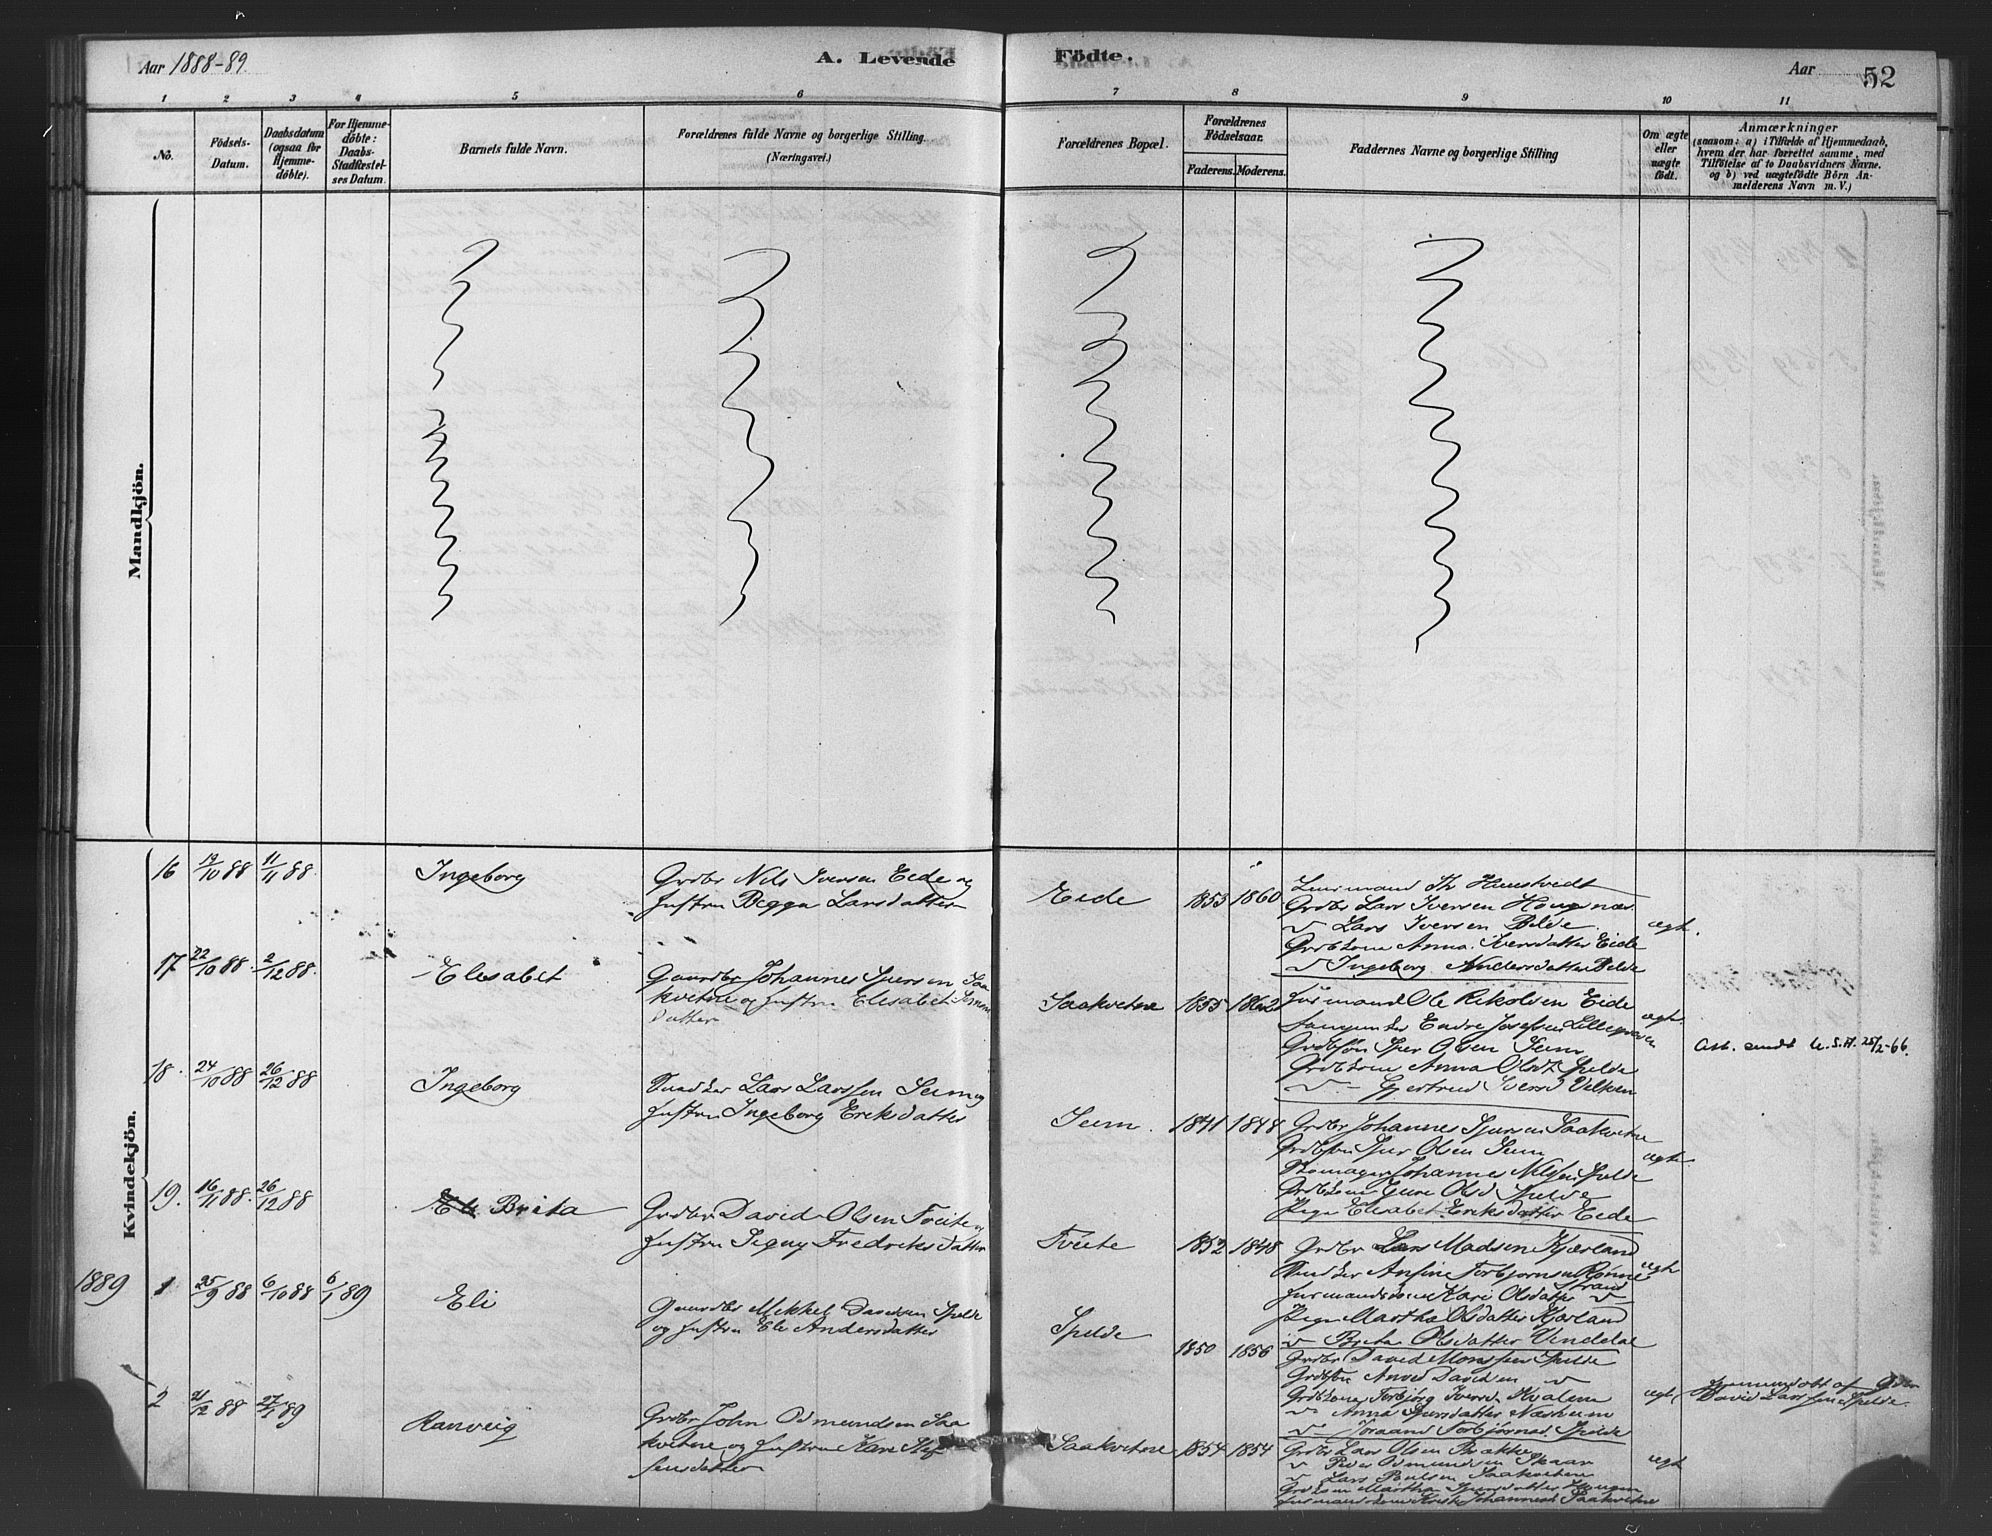 Aar 1888-89.
A. Levende
Födte.
Aar 52
1 2 3 4 5 6 7 8 9 10 11
No.
Födsels-
Datum.
Daabsdatum
(ogsaa for
Hjemme-
döbte).
For Hjemme-
döbte:
Daabs-
Stadfæstel-
ses Datum.
Barnets fulde Navn.
Forældrenes fulde Navne og borgerlige Stilling.
(Næringsvei.)
Forældrenes Bopæl.
Forældrenes
Födselsaar.
Faderens. Moderens.
Faddernes Navne og borgerlige Stilling
Om ægte
eller
uægte
födt.
Anmærkninger
(saasom: a) i Tilfælde af Hjemmedaab,
hvem der har forrettet samme, med
Tilföielse af to Daabsvidners Navne.
og b) ved uægtefödte Börn An-
melderens Navn m. V.)
Mandkjön.
Kvindekjön.
16 19/10 88 11/11 88. Ingeborg
Grdbr Nils Iversen Eide og
Hustru Begga Larsdatter
Eide 1853 1860
Lensmand Th Hunstvedt
Grdbr Lars Iversen
v Lars Iversen Belde
Anna Iversdatter Eide
v Ingeborg Andersdatter Belde
ægt.
17 22/10 88. 2/12 88. Elesabet
Gaardbr Johannes Sjursen Saa
kvitne og Hustru Elesabet Simons
datter
Saakvitne 1855 1862
Husmand Ole Eide
Endre Josefsen Lillegraven
Grdbsøn Sjur Olsen Seim
Anna Olsdt Spelde
v Gjertrud Iversd Velken
ægt.
Att. sendt U.S.A. 25/2-66.
18. 24/10 88 26/12 88 Ingeborg
Lars Larssen Seim og
Hustru Ingeborg Eriksdatter
Seim. 1841 1848
Grdbr Johannes Sjursen Saakvitne
Grdbsøn Sjur Olsen Seim
Skomager Johannes Nilsen Spelde
Olsd Spelde
Pige Elesabet Eriksdatter Eide
ægt
19. 16/11 88. 26/12 88 Brita
Grdbr David Olsen Tveite og
Hustru Signy Fredriksdatter
Tveite 1852 1848
Grdbr Lars Madsen Kjærland
Ansine Torbjornsen Rønne
strand
Kari Olsdatter v
Pige Martha Olsdatter Kjærland
v Brita Olsdatter Vindal
ægt
1889 1 25/9 88 6/10 88 6/1 89 Eli
Gaardbr Mikkel Davidsen Spelde
og Hustru Eli Andersdatter
Spelde 1850 1856
Grdbr David Monssen Spelde
Grdbsøn Anved Davidsen v
Torbjørg Iversd Kvalem
v Anna Sjursdatter Næsheim
v Joraand Torbjørnsd. Spelde
ægt
Hjemmedøbt af Gbr
David Larssen Spelde.
2 21/12 88 27/1 89 Ranveig
Grdbr John Odmundsen Saa
kvitne og Hustru Kari Stef
fensdatter
Saakvitne 1854 1854
Grdbr Lars Olsen Brække
v Peder Odmundsen Skaar
v Lars Poulsen Saakvitne
Martha Sjursdatter Haugen
Johannesd Saakvitne
ægt